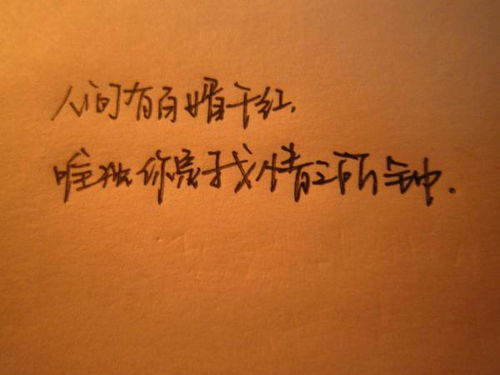 人间有百媚千红，
唯独你是于我情之所钟.